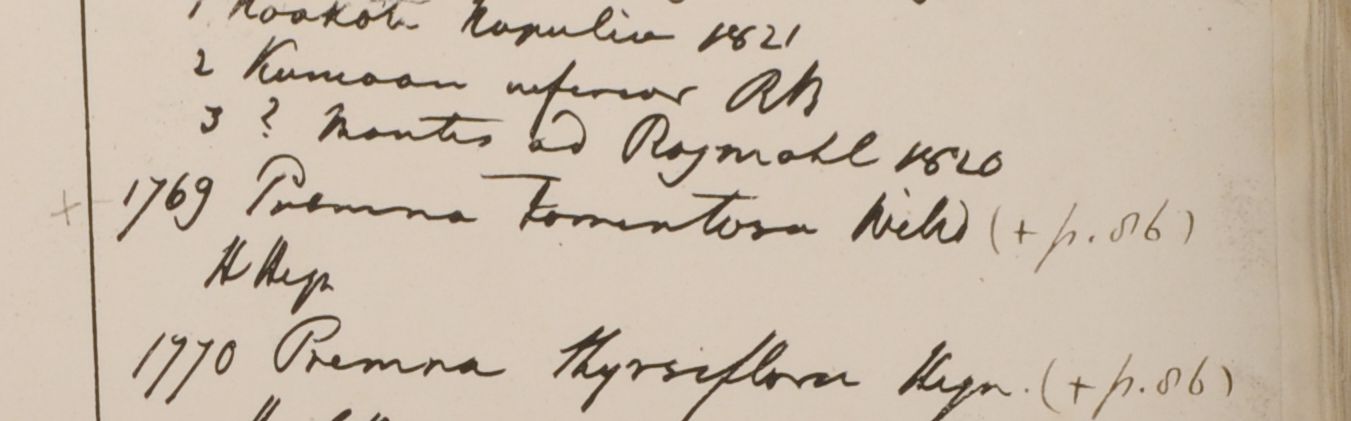 1 Noakote Napalia 1821
2 Kumaon inferior RB
3 ? Montes ad Raymahl 1820
+ 1769 Premna tomentosa Willd (+ p. 86)
H Heyn
1770 Premna thyrsiflora Heyn. (+ p. 86)